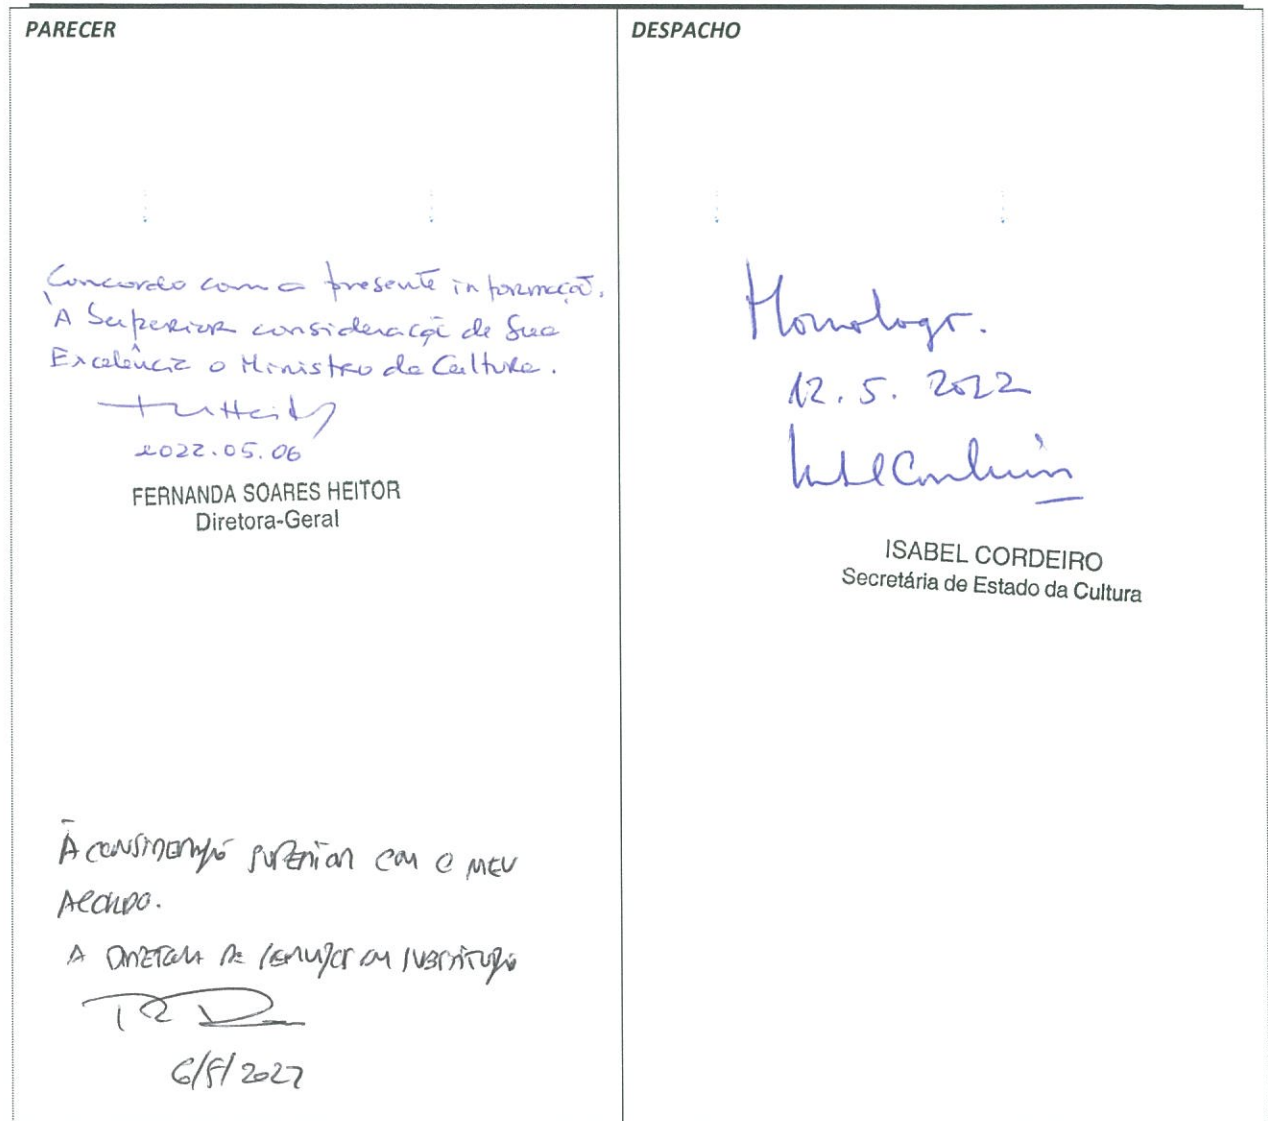 PARECER
Concordo com a presente informação.
À Superior consideração de Sua
Excelência o Ministro da Cultura.
2022.05.06
FERNANDA SOARES HEITOR
Diretora-Geral
À consideração superior com o meu
acordo.
A Diretora de Serviços em substituição
6/5/2022
DESPACHO
Homologo.
12.5.2022
Isabel Cordeiro
ISABEL CORDEIRO
Secretária de Estado da Cultura